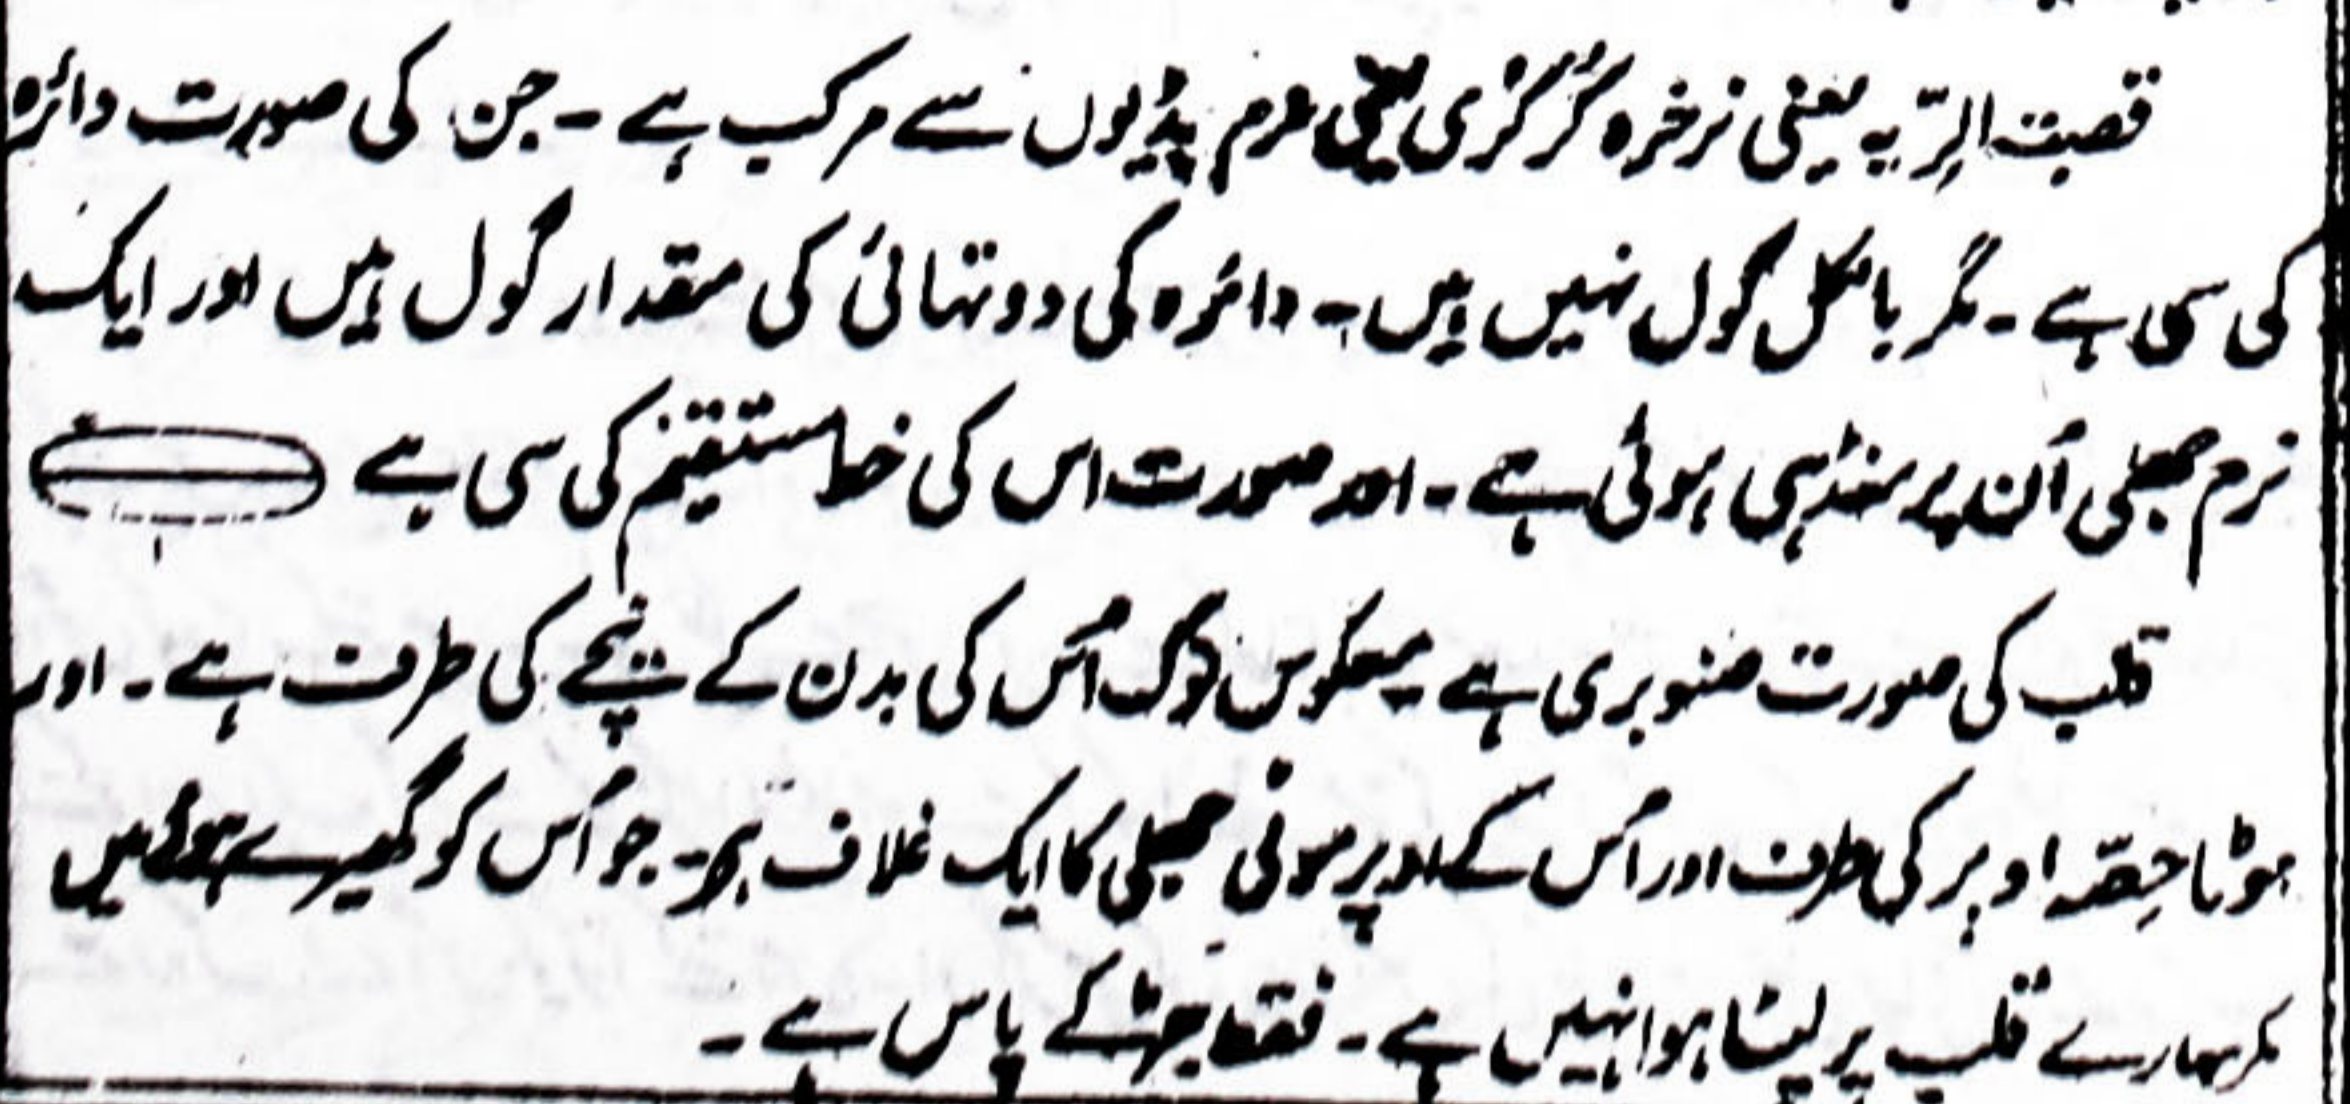 قصبۃ الرّیہ یعنی نرخرہ کُرکُری یعنی نرم ہڈیوں سے مرکب ہے ۔ جن کی صورت دائرہ
کی سی ہے ۔ مگر بالکل گول نہیں ہیں ۔ دائرہ کی دو تہائی کی مقدار گول ہیں اور ایک
نرم جھلی اُن پر منڈہی ہوئی ہے ۔ اور صورت اس کی خط مستقیم کی سی ہے
قلب کی صورت صنوبری ہے معکوس نوک اُس کی بدن کے نیچے کی طرف ہے ۔ اور
موٹا حِصّہ اوپر کی طرف اور اُس کے اوپر موٹی جھلی کا ایک غلاف ہے ۔ جو اُس کو گھیرے ہوئے ہیں
مگر سارے قلب پر لپٹا ہوا نہیں ہے ۔ فقط جڑ کے پاس ہے ۔